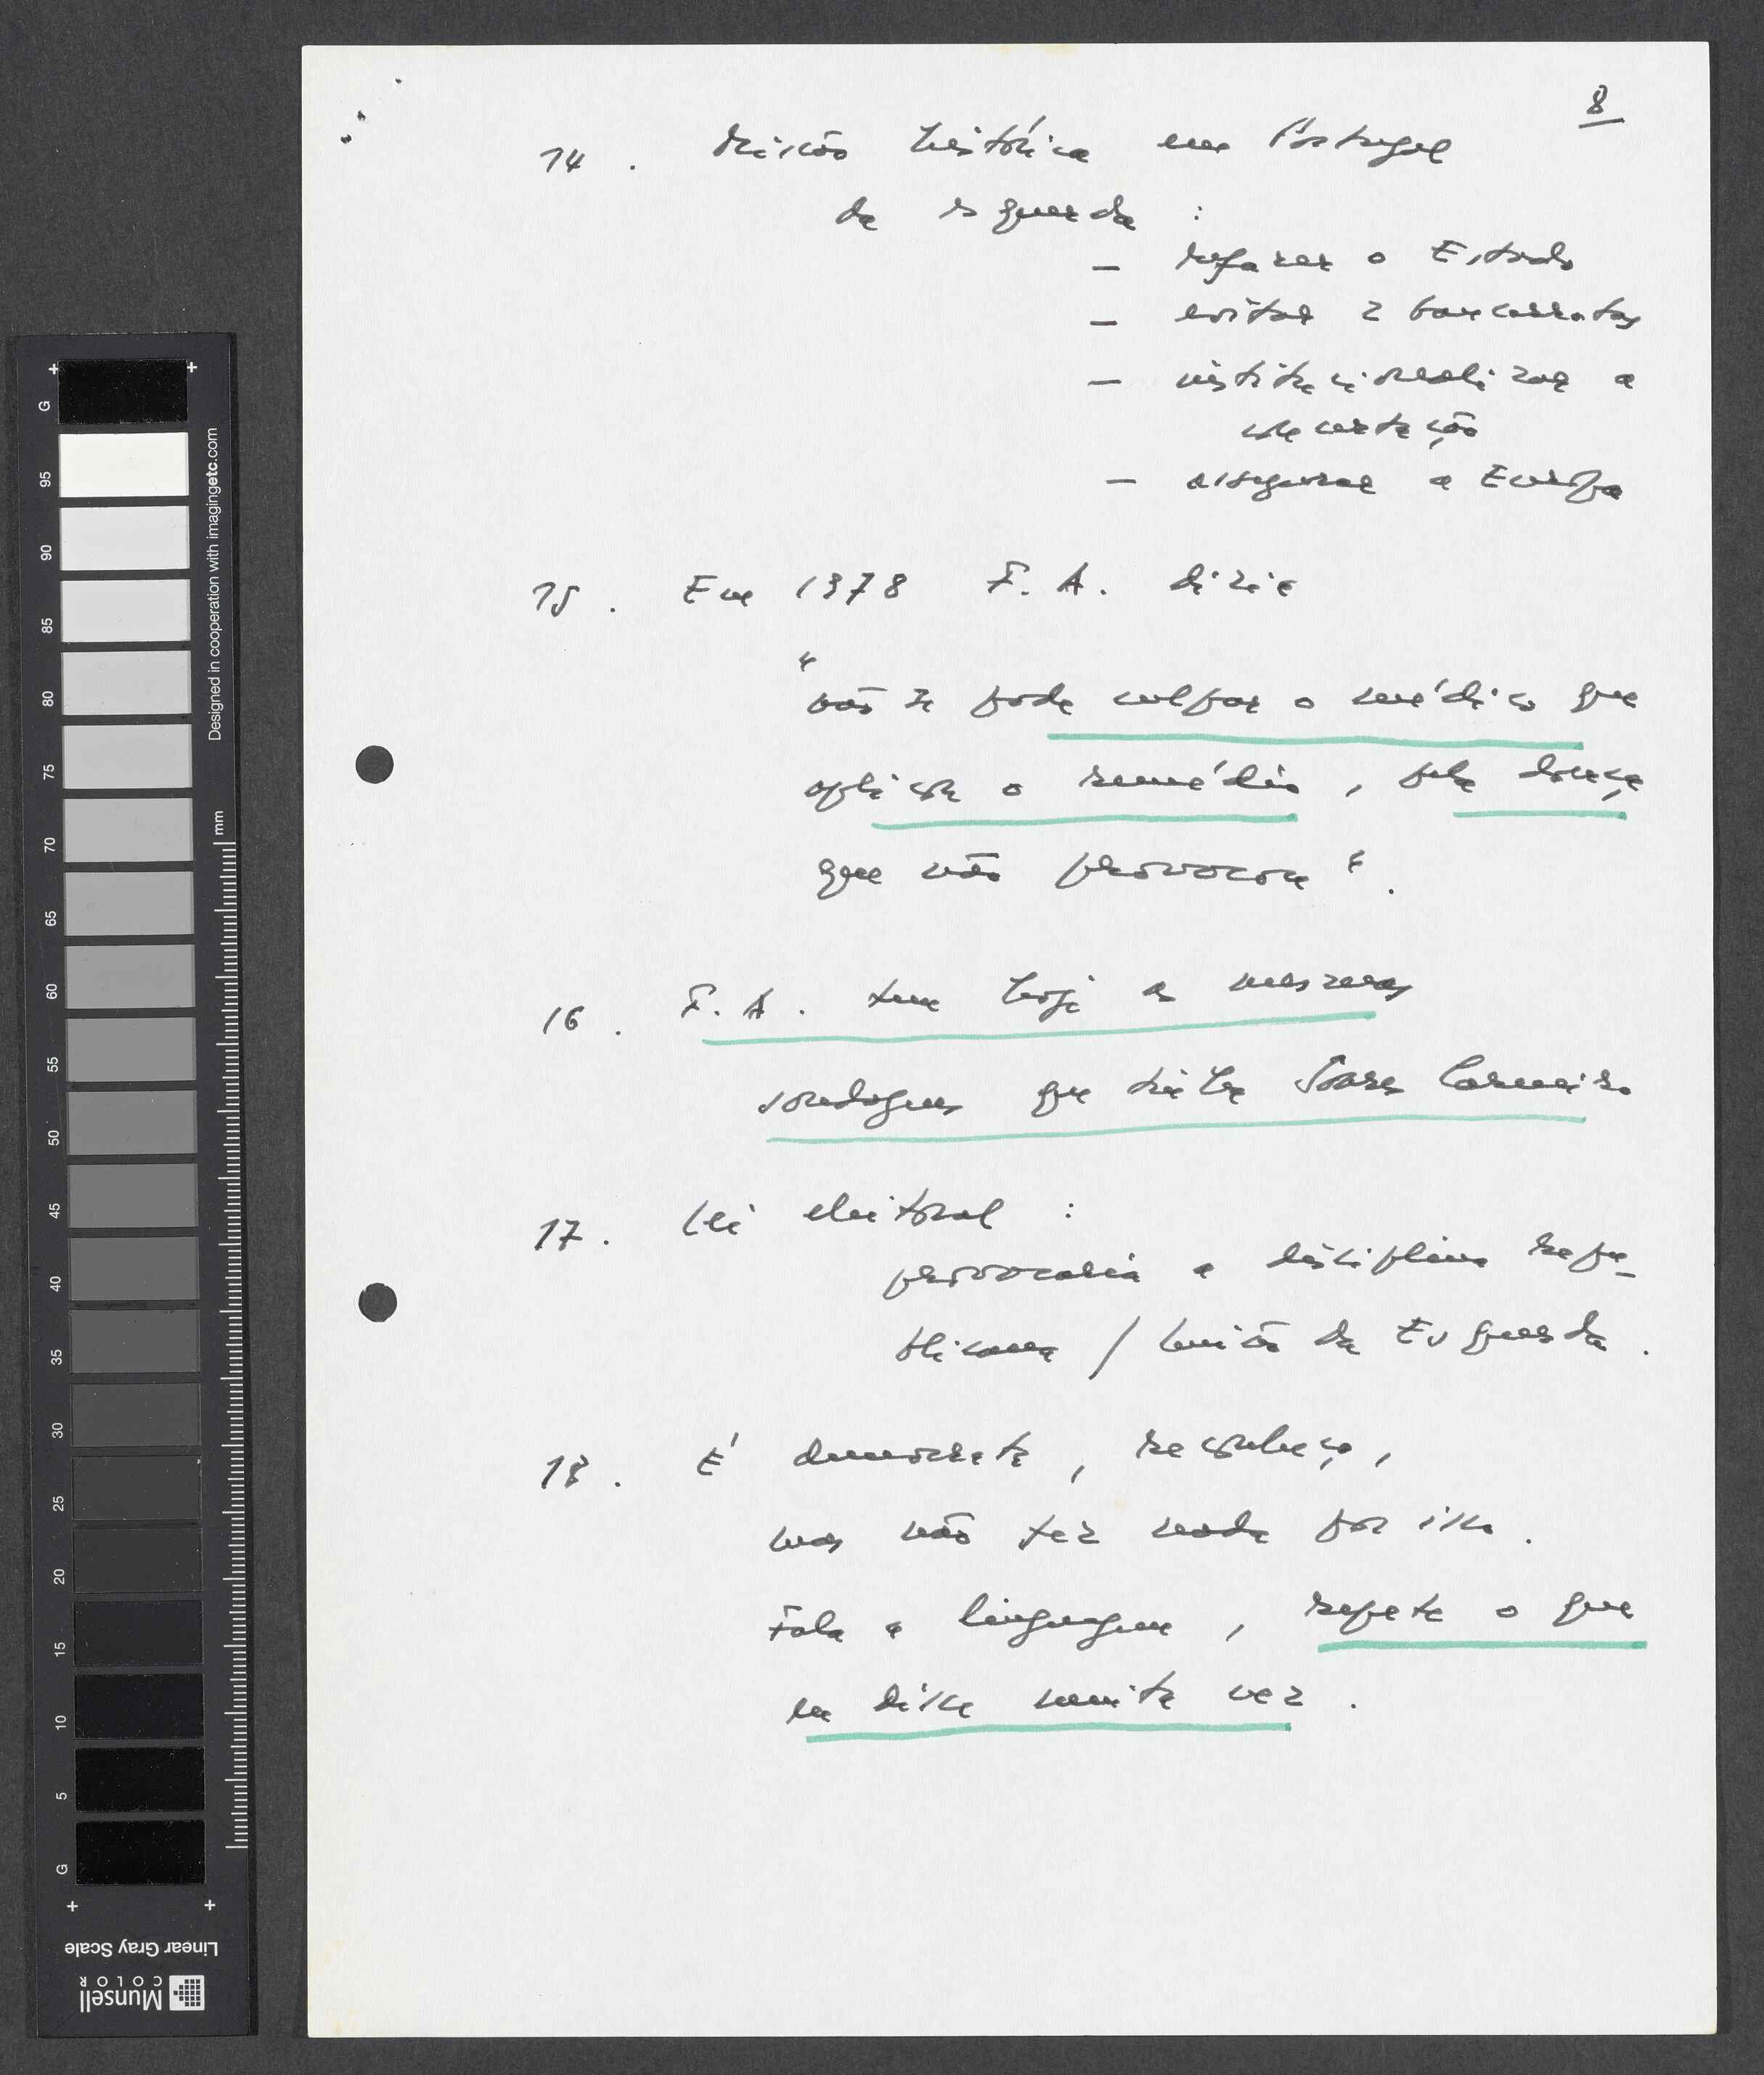 8
14. Missão histórica em Portugal
da esquerda :
– refazer o Estado
– evitar 2 bancarrotas
– institucionalizar a
concertação
– assegurar a Europa
15. Em 1978 F. A. dizia
"não se pode culpar o médico que
aplicou o remédio, pela doença
que não provocou".
16. F. A. tem hoje as mesmas
sondagens que tinha Soares Carneiro
17. Lei eleitoral :
provocaria a disciplina repu-
blicana / União da Esquerda.
18. É democrata, reconheço,
mas não fez nada por isso.
Fala a linguagem, repete o que
eu disse muita vez.
G
95
90
85
80
75
70
65
60
55
50
45
40
35
30
25
20
15
10
5
G
mm
Designed in cooperation with imagingetc.com
Linear Gray Scale
Munsell
COLOR